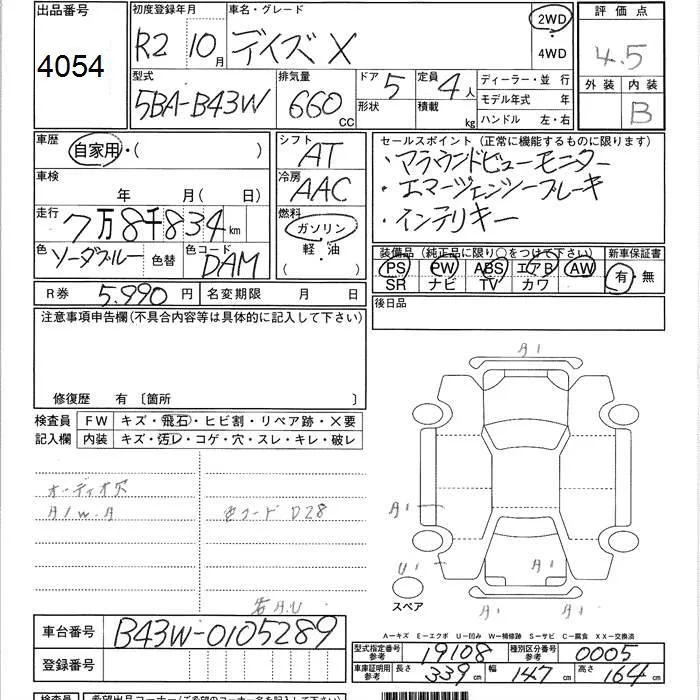 出品番号 初度登録年月 車名・グレード 2WD 評価点
4054 R2 10月 デイズ X 4WD 4.5
型式 排気量 ドア 定員 ディーラー・並行 外装 内装
5BA-B43W 660CC 5 4人 モデル年式 年 B
形状 積載 kg ハンドル 左・右
車歴 自家用・( ) シフト AT セールスポイント(正常に機能するものに限ります)
車検 年 月( 日) 冷房 AAC ・アラウンドビューモニター
・エマージェンシーブレーキ
走行 7万8千834km 燃料 ガソリン ・インテリキー
軽・油
( )
色 ソーダブルー 色替 色コード DAM 装備品(純正品に限り○をつけて下さい) 新車保証書
PS PW ABS エアB AW 有 無
SR ナビ TV カワ
R券 5.990円 名変期限 月 日 後日品
注意事項申告欄(不具合内容等は具体的に記入して下さい)
修復歴 有〔箇所 〕
検査員 FW キズ・飛石・ヒビ割・リペア跡・×要
記入欄 内装 キズ・汚レ・コゲ・穴・スレ・キレ・破レ
A1
オーディオ穴
A/W.A 色コード D28 A1
U1 A1
スペア
A1 A1
A.U
A-キズ E-エクボ U-凹み W-補修跡 S-サビ C-腐食 XX-交換済
車台番号 B43W-0105289
型式指定番号 参考 19108 種別区分番号 参考 0005
登録番号 車庫証明用 参考 長さ 339cm 幅 147cm 高さ 164cm
検査員 希望出品コーナー(ご希望のコーナー名を記入して下さい)